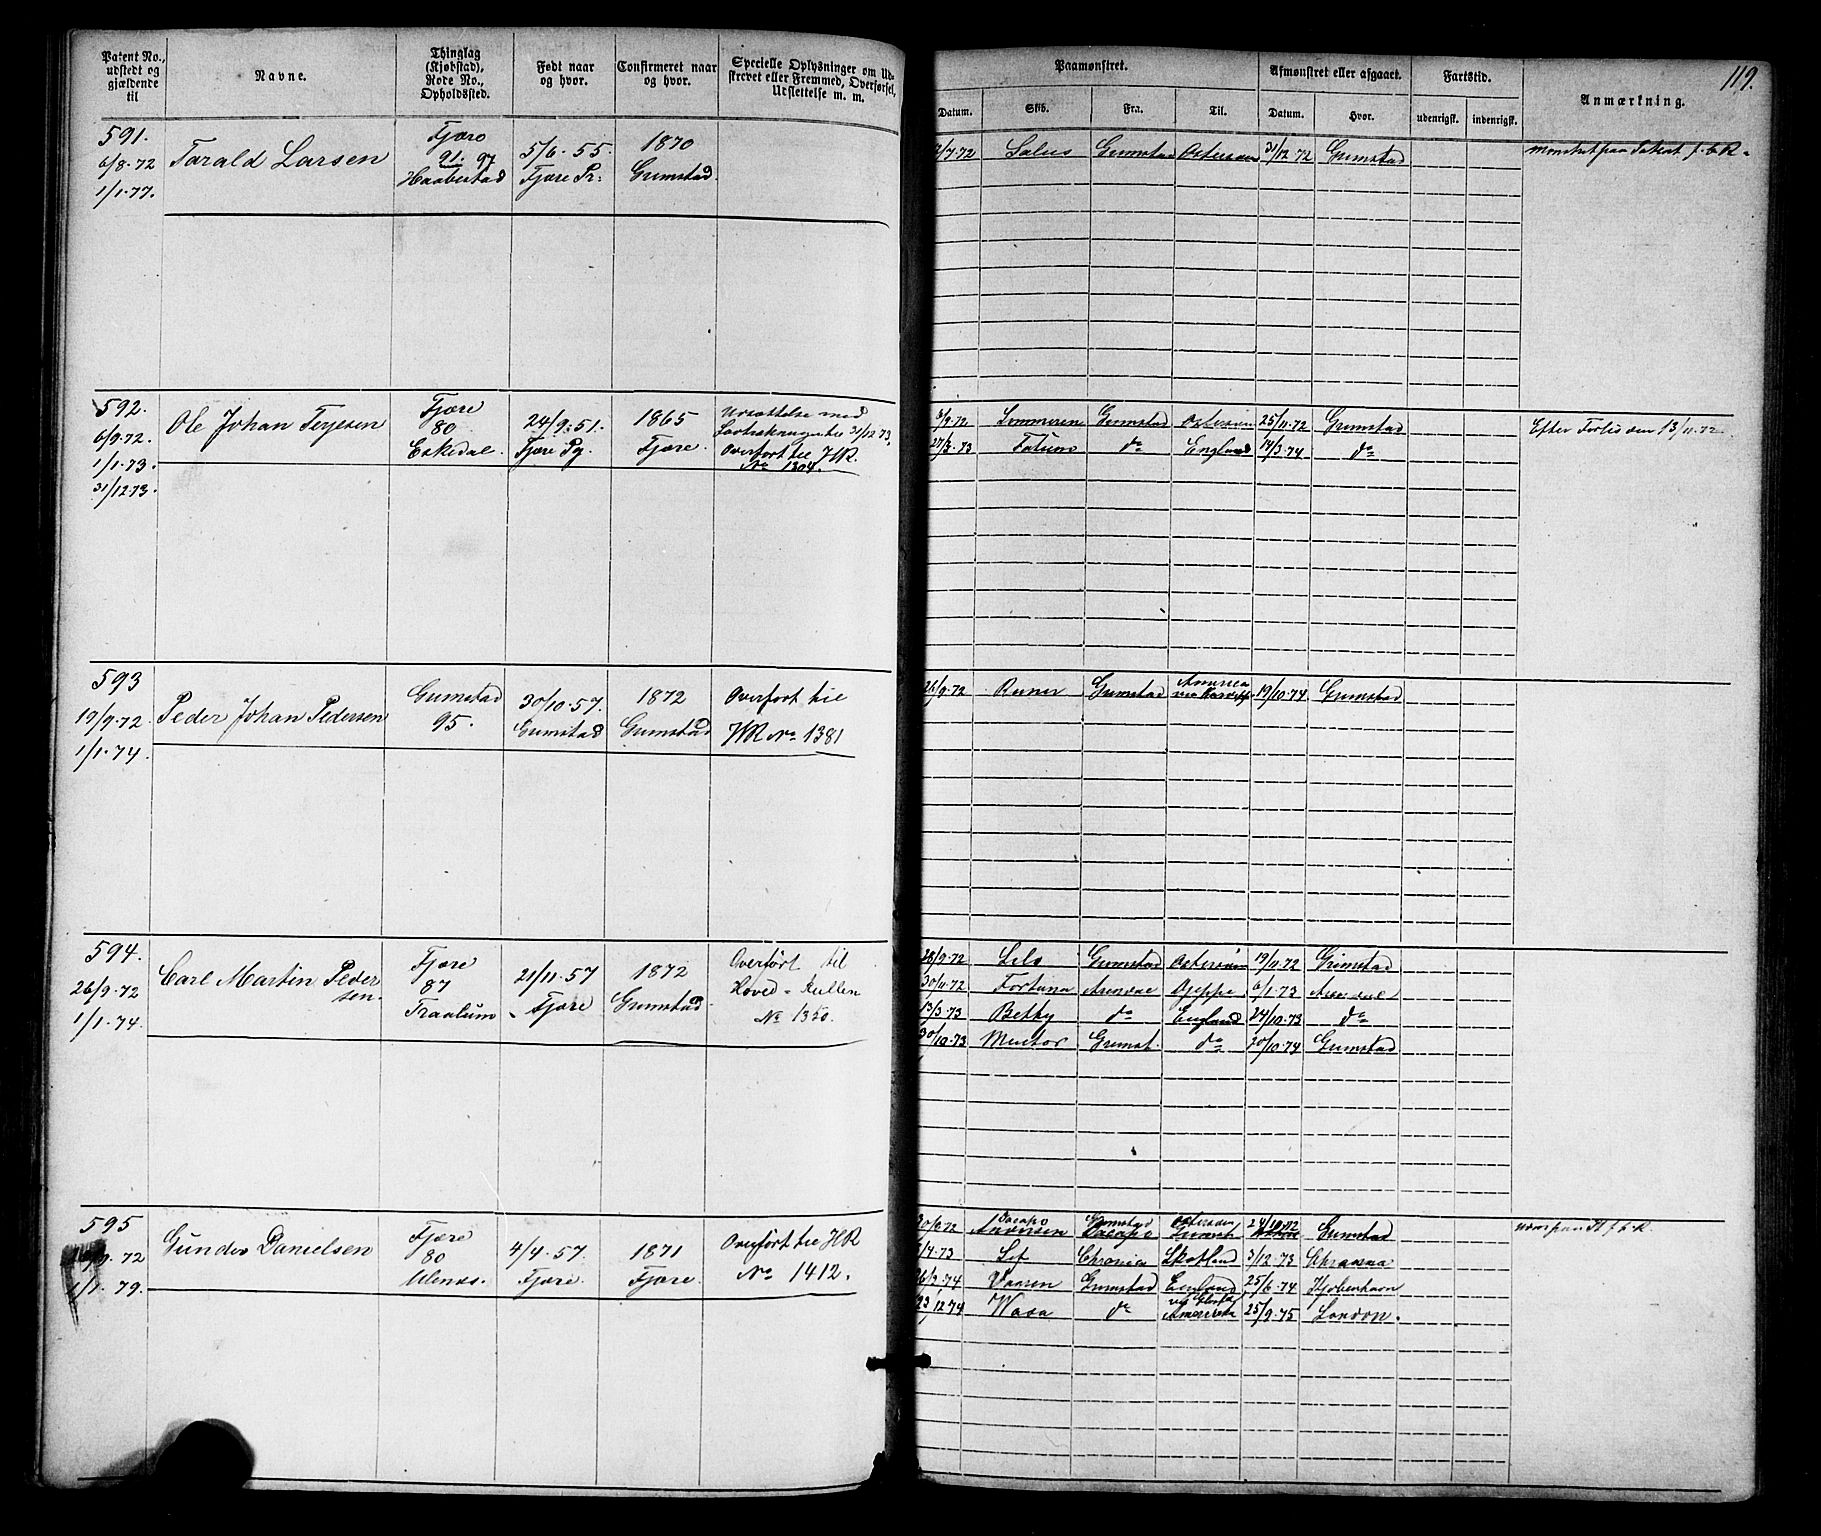 119.
Patent No., udstedt og gjældende til
Navne.
Thinglag (Kjøbstad), Rode No., Opholdssted.
Født naar og hvor.
Confirmeret naar og hvor.
Specielle Oplysninger om Udskrevet eller Fremmed, Overførsel, Udslettelse m. m.
Paamønstret.
Afmønstret eller afgaaet.
Fartstid.
Anmærkning.
Datum.
Skib.
Fra.
Til.
Datum.
Hvor.
udenrigsk.
indenrigsk.
591.
6/8.72
1/1.77.
Tarald Larsen
Fjære
91. 97
5/6.55.
Fjære Pr:
1870
Grimstad.
2/7.72 Salus Grimstad Østersøen 31/12 72 Grimstad
592.
6/9.72.
1/1.73.
31/12.73.
Ole Johan Terjesen
Fjære
80
Eskedal.
24/9.51.
Fjære Pg.
1865
Fjære.
Overført til HR.
No 1304.
3/9.72 Grimstad Østersøen 25/11.72 Grimstad
27/3.73 Fatum do England 19/3.74 do
Efter Forlis den 13/11.72.
593
17/9.72.
1/1.74.
Peder Johan Pedersen
Grimstad
95.
30/10.57.
Grimstad
1872
Grimstad
Overført til
HR No 1381
26/9.72 Grimstad America 19/10.74 Grimstad
594.
26/9.72
1/1.74.
Carl Martin Peder
sen.
Fjære
87
Traalum
21/11.57
Fjære
1872
Grimstad
Overført til
Hoved-Rullen
No 1350.
28/9.72 Grimstad Østersøen 19/11.72 Grimstad
30/11.72 Fortuna Arendal Dieppe 6/1.73 Arendal
13/3.73 Betty do England 24/10.73 do
30/10.73 Grimst. do 20/10.74 Grimstad
595
1/1.79.
Gunder Danielsen
Fjære
80
4/4.57.
Fjære.
1871
Fjære.
Overført til HR
No 1412.
30/9.72 Grimstad Østersøen 24/10.72 Grimstad
7.73 Sif Skotland 3/12.73
26/3.74 Vaaren Grimstad England 25/6.74 Kjøbenhavn
23/12 74 Wasa do Amerika 25/9.75 London.